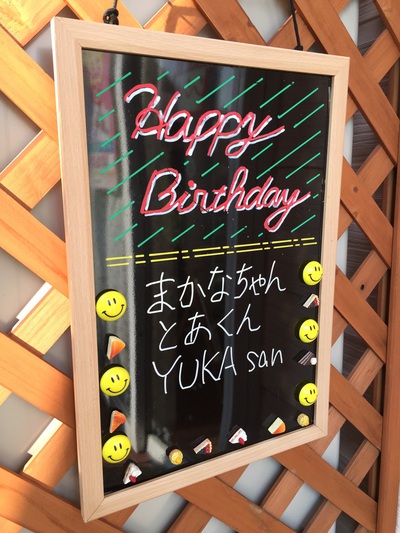 Happy
Birthday
まかなちゃん
とあくん
YUKA san